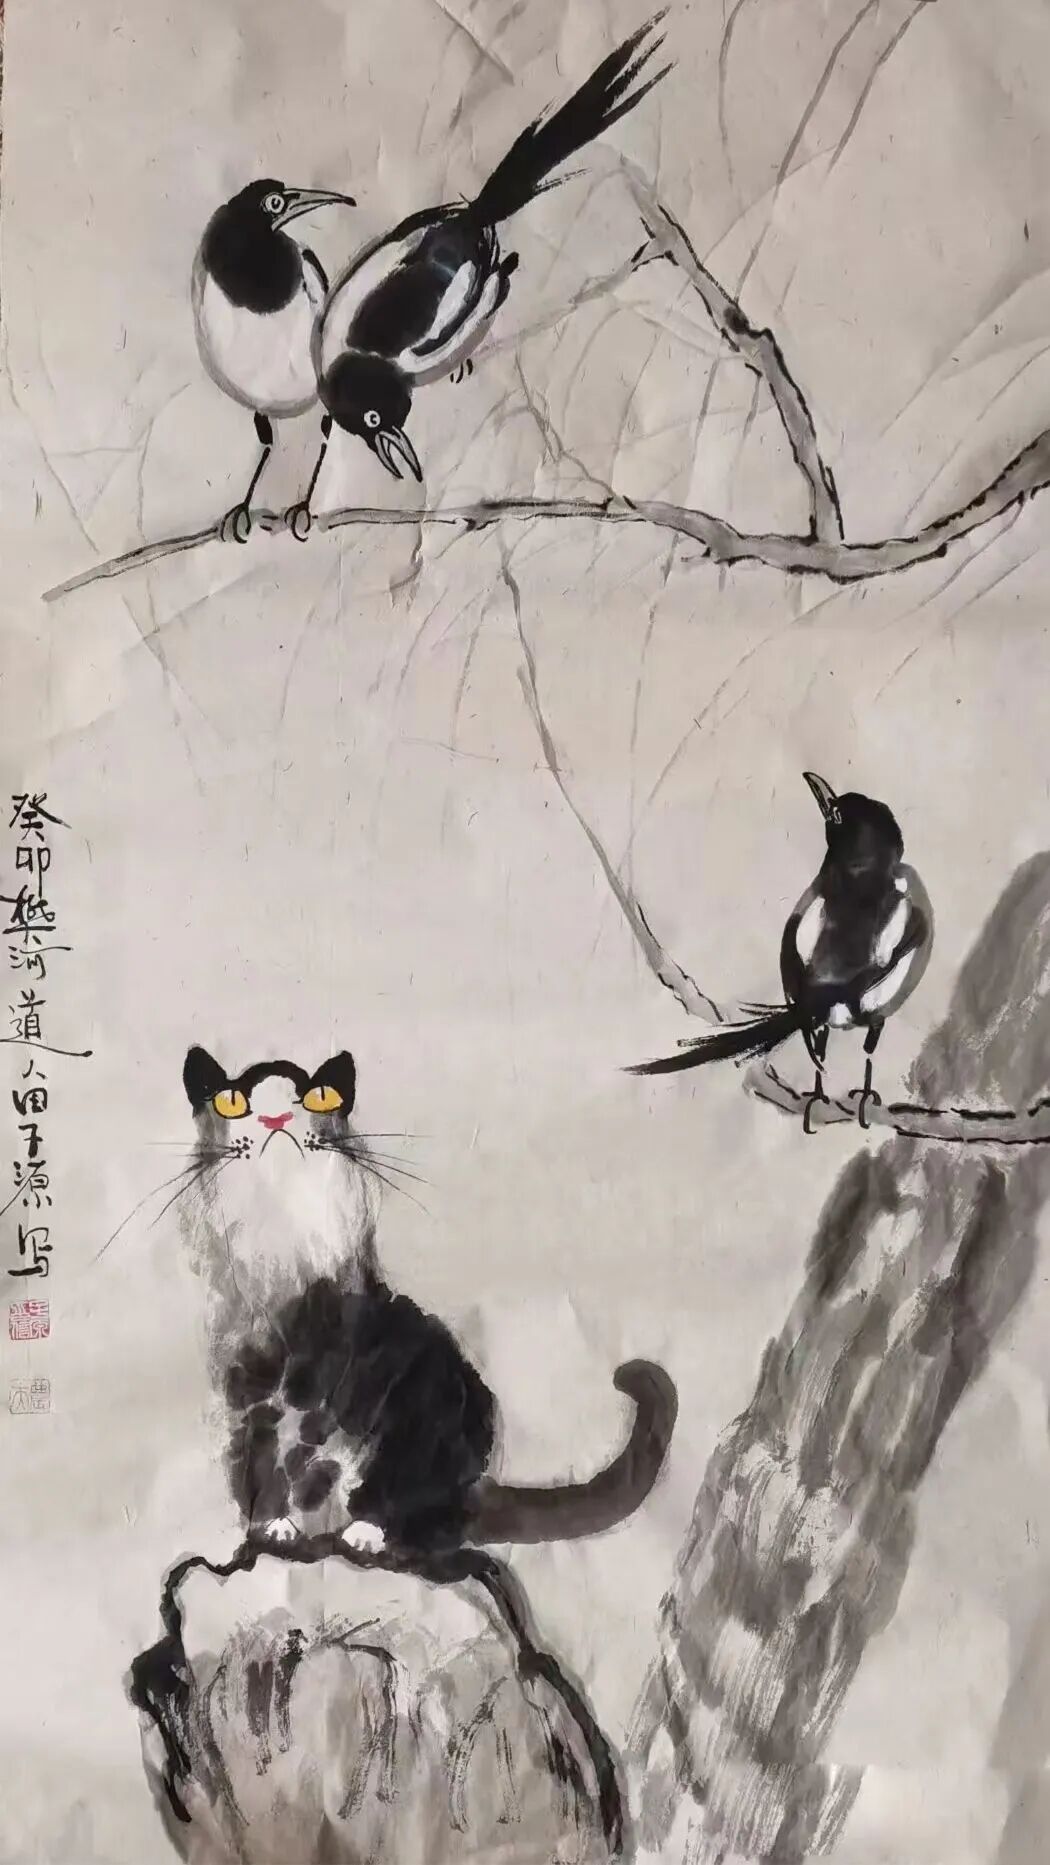 癸卯樊河道人田子源写